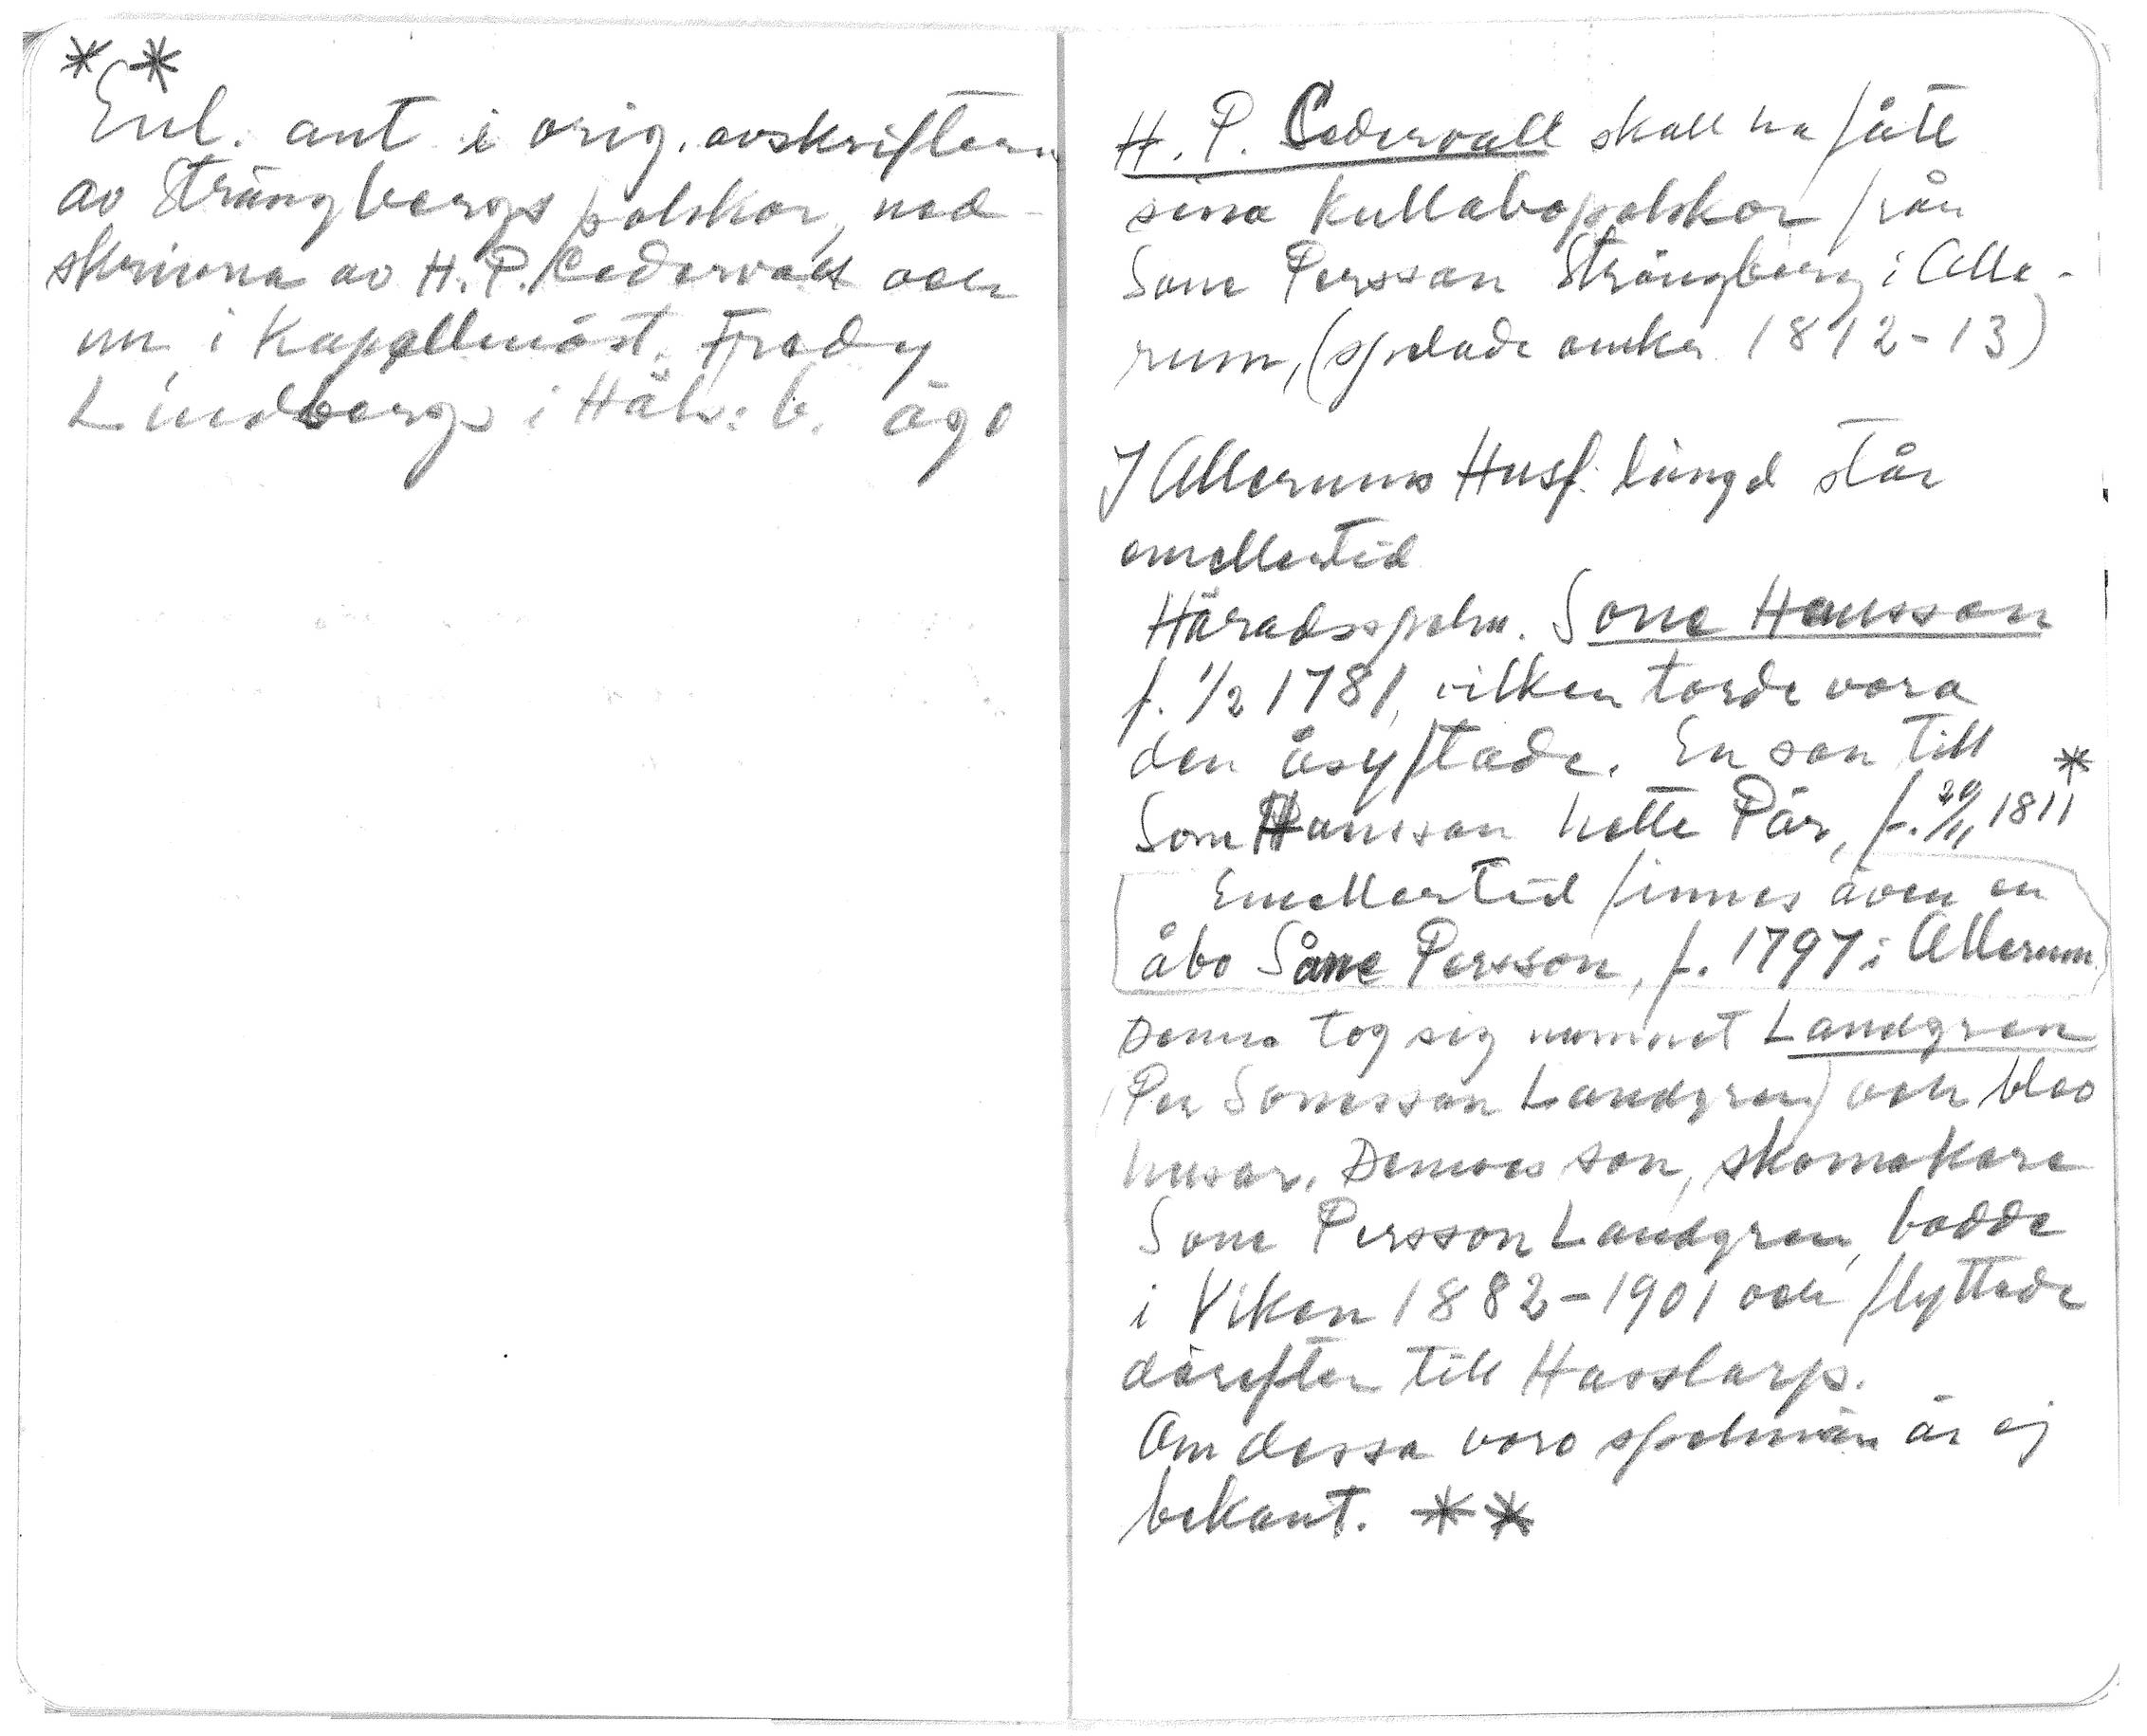 * *
Enl. ant i orig. avskriften
av Strängbergs polskor, ned-
skrivna av H. P. Cedervall och
nu i Kapellmäst. Fredy
Lindbergs i Häls:b. ägo
H. P. Cedervall skall ha fått
sina Kullabopolskor från
Sone Persson Strängberg i Alle-
rum, (spelade omkr 1812-13)
I Allerums Husf. längd står
emellertid
Häradsspelm. Sone Hansson
f. 1/2 1781, vilken torde vara
den åsyftade. En son till *
Sone Hansson hette Pär, f. 20/11 1811
Emellertid finnes även en
åbo Såne Persson, f. 1797 i Allerum
Denne tog sig namnet Landgren
(Per Sonesson Landgren) och blev
husar. Dennes son, skomakare
Sone Persson Landgren, bodde
i Viken 1882-1901 och flyttade
därefter till Hasslarp.
Om dessa voro spelmän är ej
bekant. * *